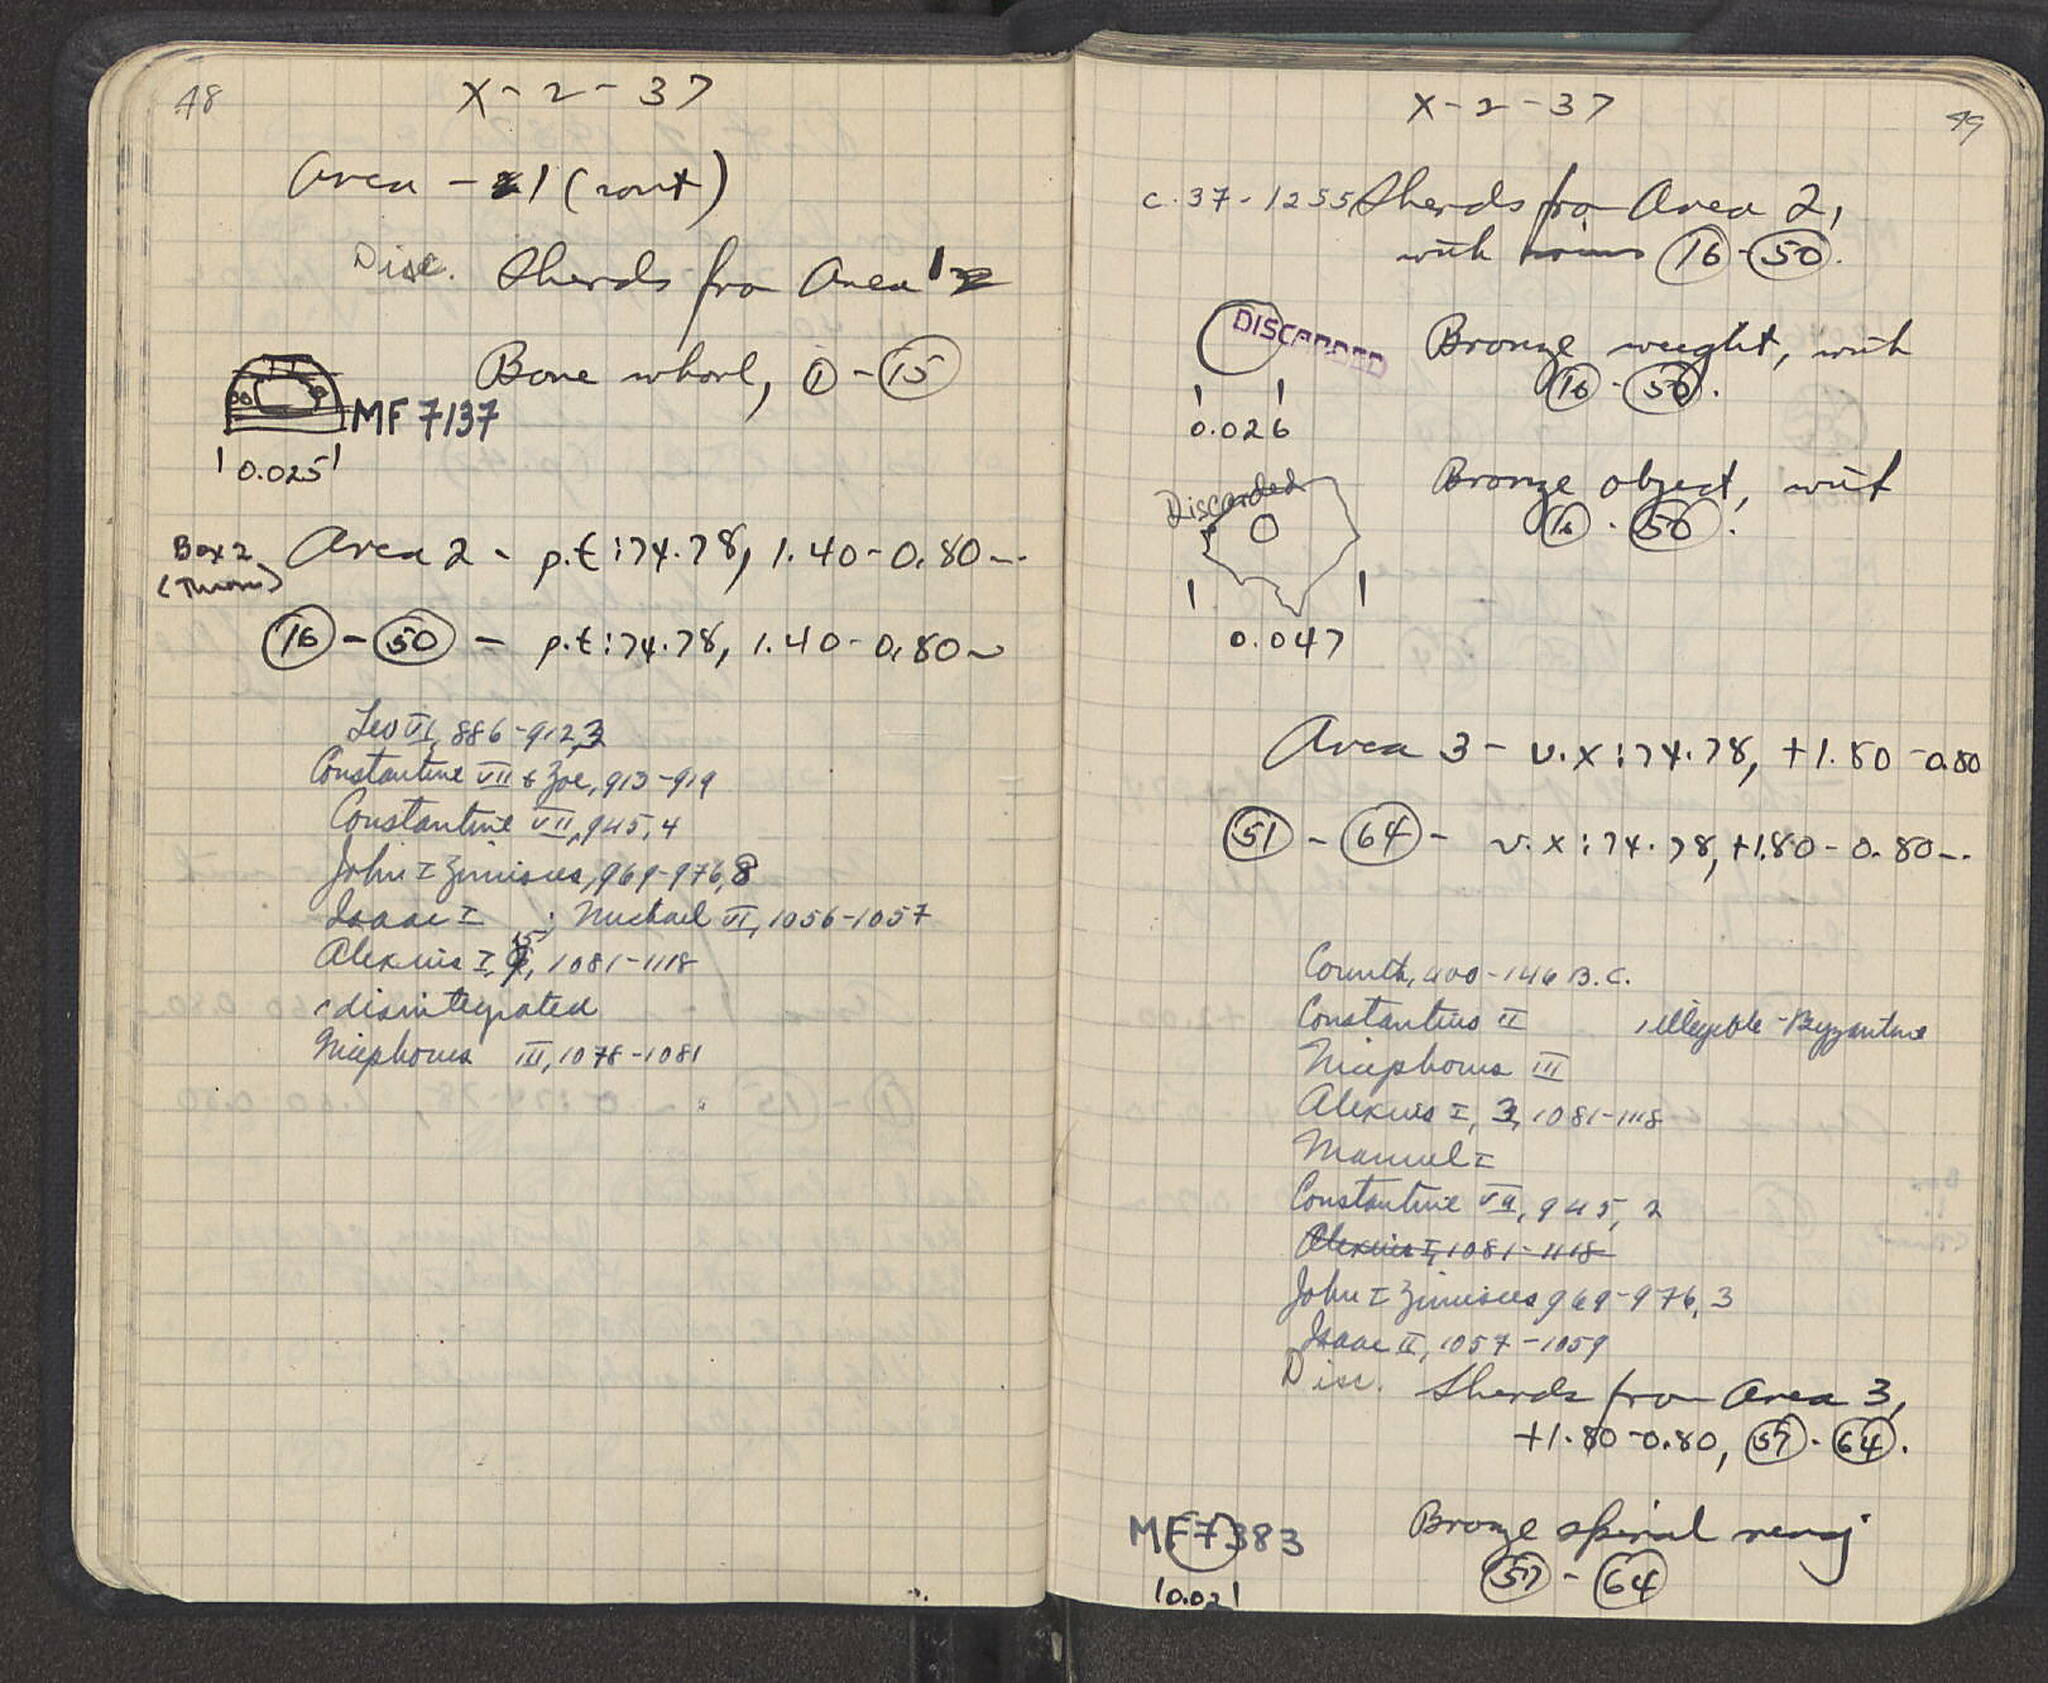 48
X-2-37
Area - 1 (cont)
Disc. Sherds from Area 1
Bone whorl, 1 - 15
MF 7137
0.025
Box 2
Area 2 - p.t:74.78, 1.40-0.80
16 - 50 - p.t:74.78, 1.40-0.80
Leo VI, 886-912, 3
Constantine VII & Zoe, 913-919
Constantine VII, 945, 4
John I Zimisces, 969-976, 8
Isaac I ; Michael VI, 1056-1057
Alexius I, 15, 1081-1118
1 disintegrated
Nicephorus III, 1078-1081
X-2-37
49
C.37-1255 Sherds from Area 2,
with coins 16-50.
DISCARDED
Bronze weight, with
16-50.
0.026
Discarded
Bronze object, with
16-50.
0.047
Area 3 - v.x:74.78, +1.80-0.80
51 - 64 - v.x:74.78, +1.80-0.80
Corinth, 400-146 B.C.
Constantius II 1 illegible-Byzantine
Nicephorus III
Alexius I, 3, 1081-1118
Manuel I
Constantine VII, 945, 2
Alexius I, 1081-1118
John I Zimisces 969-976, 3
Isaac II, 1057-1059
Disc. Sherds from Area 3,
+1.80-0.80, 51-64.
MF 7383
Bronze spiral ring
51-64
0.021